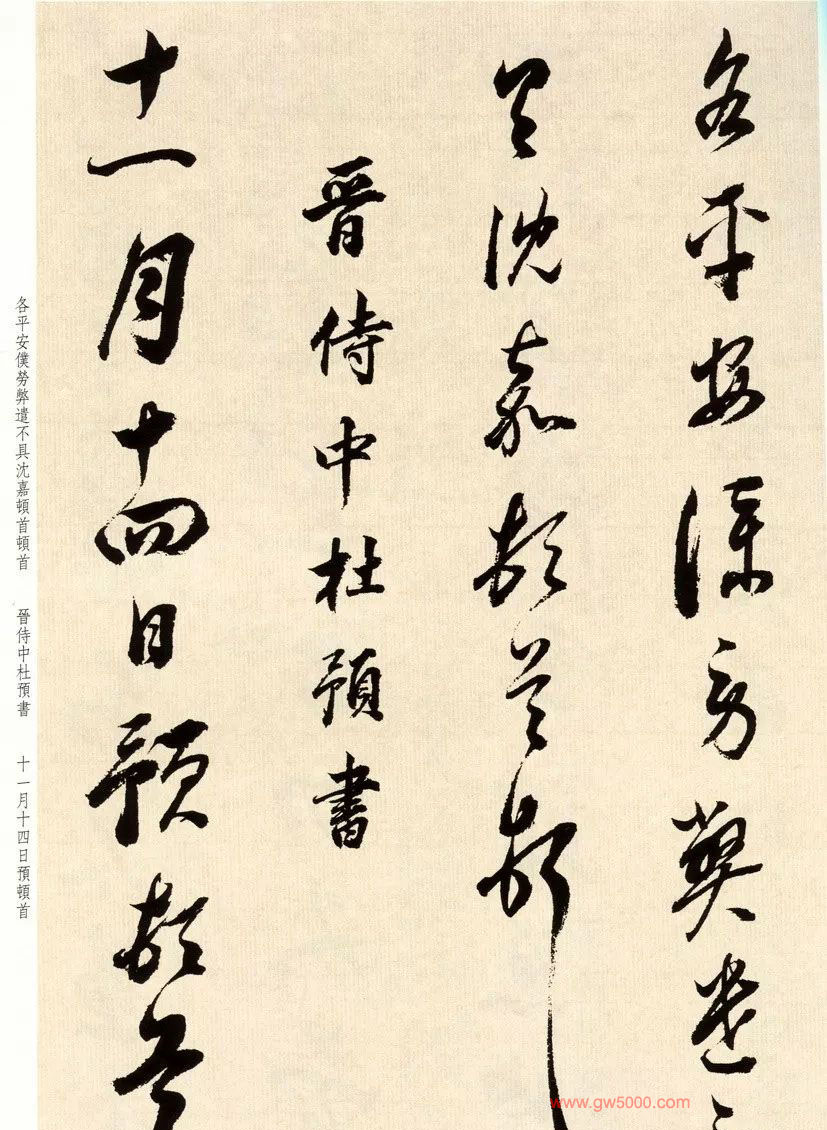 各平安僕勞弊遣不
具沈嘉頓首頓首
晉侍中杜預書
十一月十四日預頓首
各平安僕勞弊遣不具沈嘉頓首頓首 晉侍中杜預書 十一月十四日預頓首
www.gw5000.com